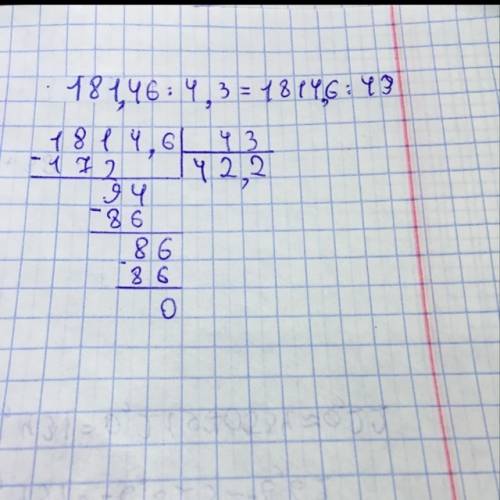 181,46 : 4,3 = 1814,6 : 43
1814,6 | 43
- 172 | 42,2
94
- 86
86
- 86
0